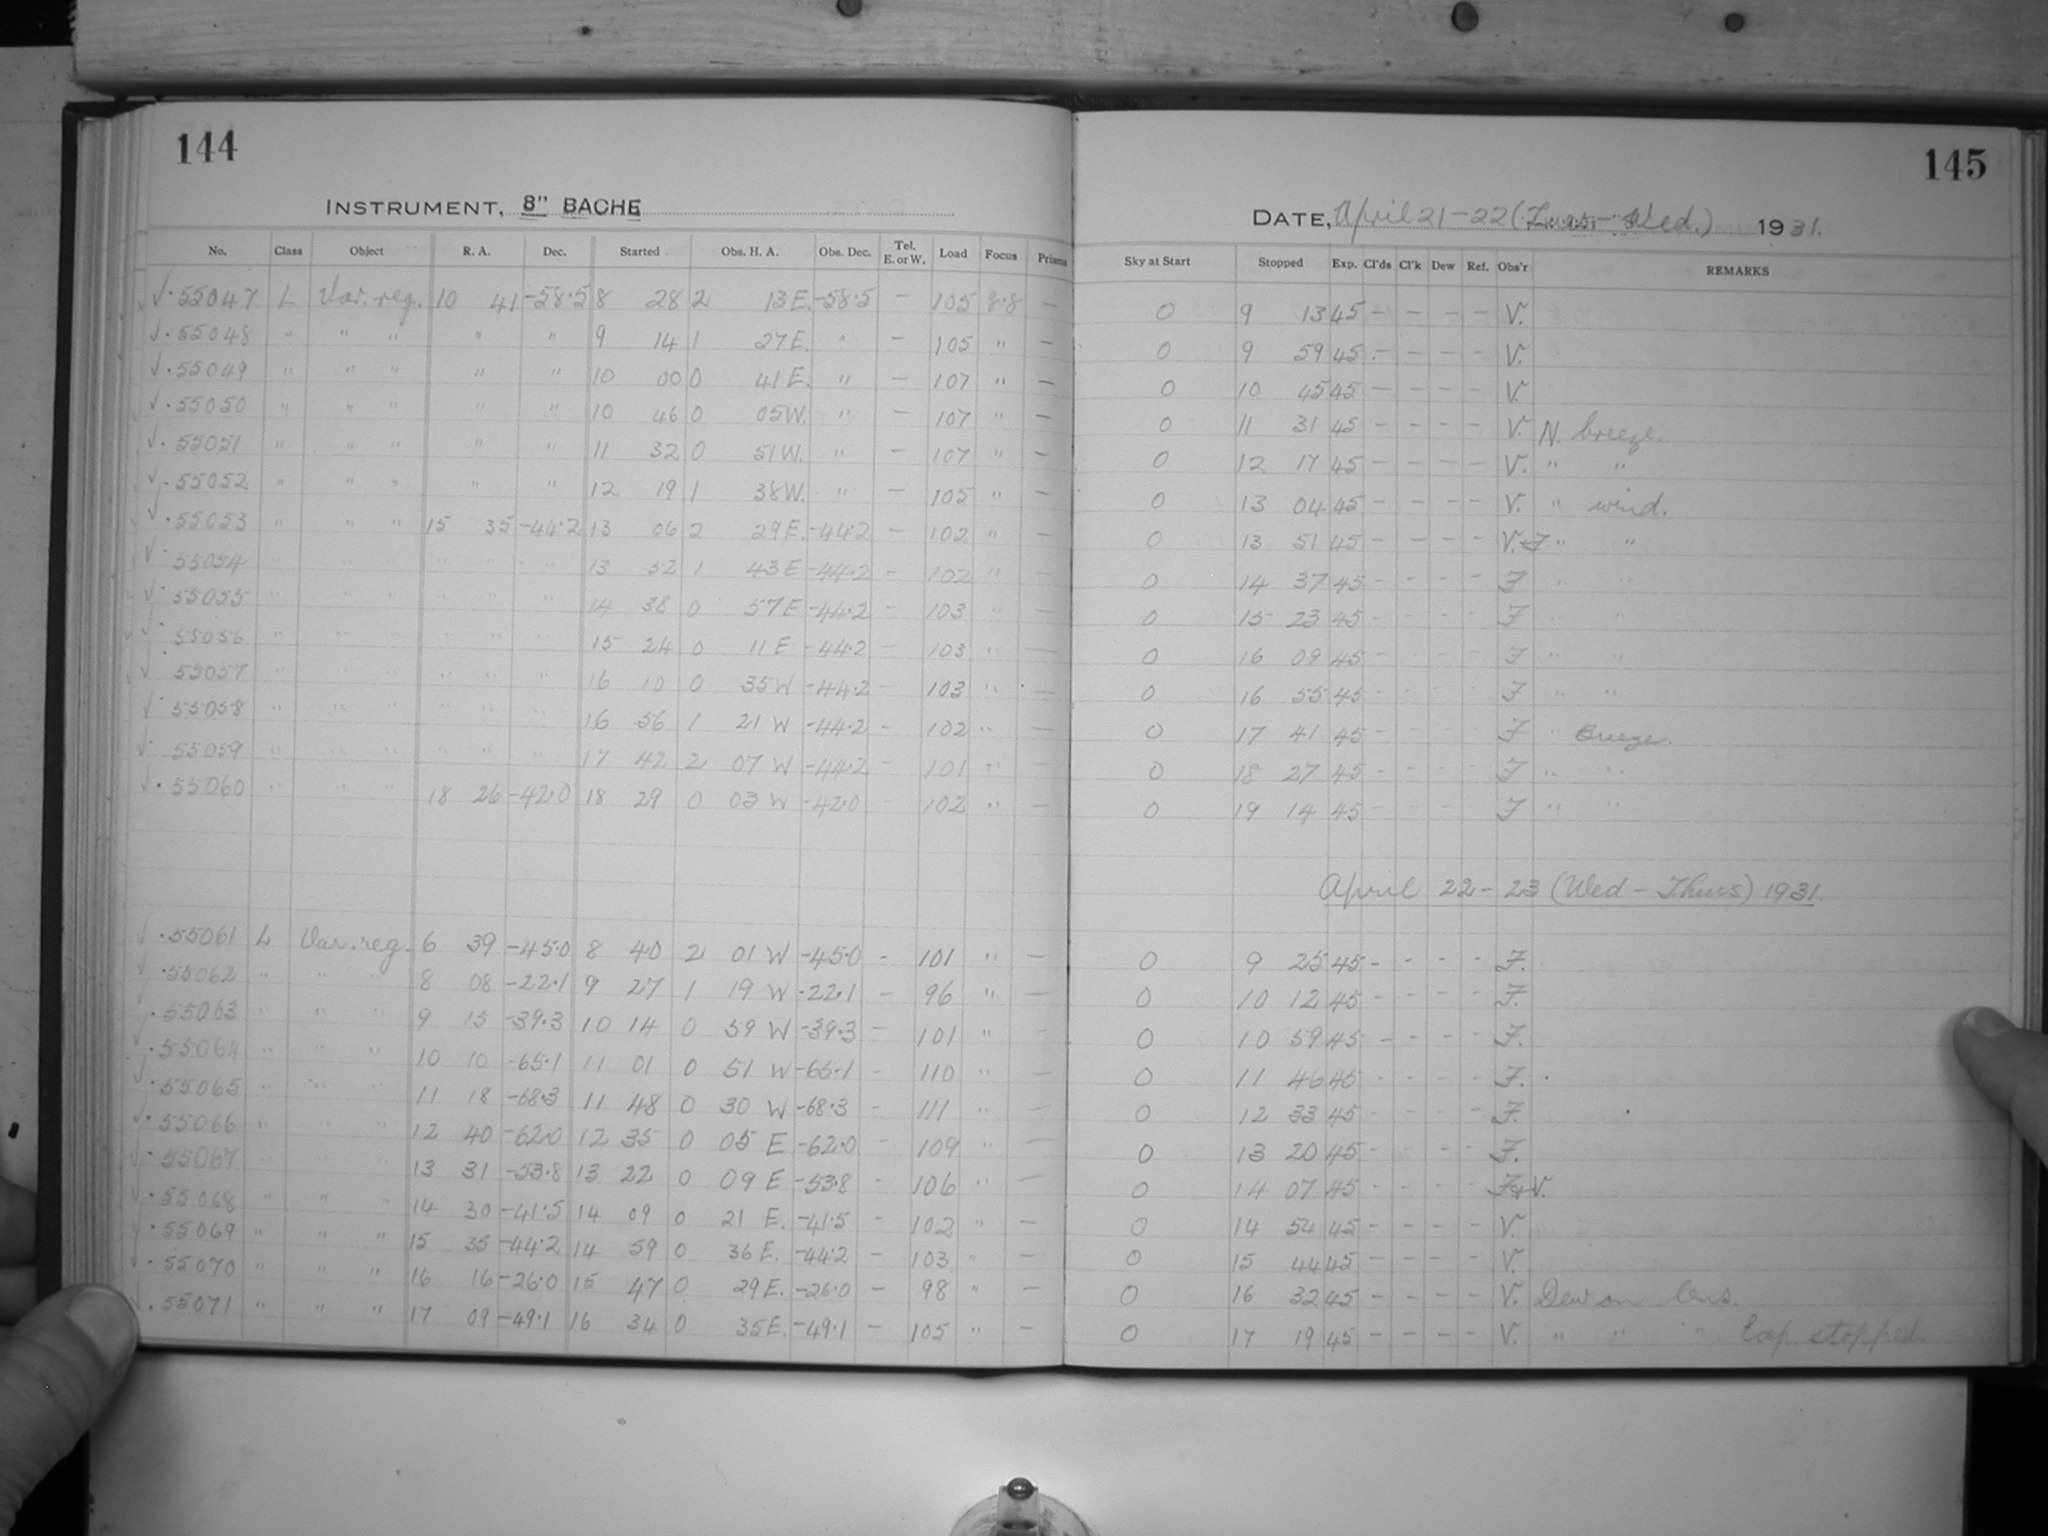 144
INSTRUMENT, 8" BACHE
No. Class Object R. A. Dec. Started Obs. H. A. Obs. Dec. Tel. E. or W. Load Focus Prisms
✓·55047 L Var. reg. 10 41 -58·5 8 28 2 13 E. -58·5 - 105 8·8 -
✓·55048 " " " " " 9 14 1 27 E. " - 105 " -
✓·55049 " " " " " 10 00 0 41 E. " - 107 " -
✓·55050 " " " " " 10 46 0 05 W. " - 107 " -
✓·55051 " " " " " 11 32 0 51 W. " - 107 " -
✓·55052 " " " " " 12 19 1 38 W. " - 105 " -
✓·55053 " " " 15 35 -44·2 13 06 2 29 E. -44·2 - 102 " -
✓·55054 " " " " " " 13 52 1 43 E -44·2 - 102 " -
✓·55055 " " " " " " 14 38 0 57 E -44·2 - 103 " -
✓·55056 " " " " " " 15 24 0 11 E -44·2 - 103 " -
✓·55057 " " " " " " 16 10 0 35 W -44·2 - 103 " -
✓·55058 " " " " " " 16 56 1 21 W -44·2 - 102 " -
✓·55059 " " " " " " 17 42 2 07 W -44·2 - 101 " -
✓·55060 " " " 18 26 -42·0 18 29 0 03 W -42·0 - 102 " -
✓·55061 L Var. reg. 6 39 -45·0 8 40 2 01 W -45·0 - 101 " -
✓·55062 " " " 8 08 -22·1 9 27 1 19 W -22·1 - 96 " -
✓·55063 " " " 9 15 -39·3 10 14 0 59 W -39·3 - 101 " -
✓·55064 " " " 10 10 -65·1 11 01 0 51 W -65·1 - 110 " -
✓·55065 " " " 11 18 -68·3 11 48 0 30 W -68·3 - 111 " -
✓·55066 " " " 12 40 -62·0 12 35 0 05 E -62·0 - 109 " -
✓·55067 " " " 13 31 -53·8 13 22 0 09 E -53·8 - 106 " -
✓·55068 " " " 14 30 -41·5 14 09 0 21 E. -41·5 - 102 " -
✓·55069 " " " 15 35 -44·2 14 59 0 36 E. -44·2 - 103 " -
✓·55070 " " " 16 16 -26·0 15 47 0 29 E. -26·0 - 98 " -
✓·55071 " " " 17 09 -49·1 16 34 0 35 E. -49·1 - 105 " -
145
DATE, April 21-22 (Tues - Wed.) 1931.
Sky at Start Stopped Exp. Cl'ds Cl'k Dew Ref. Obs'r REMARKS
0 9 13 45 - - - - V.
0 9 59 45 - - - - V.
0 10 45 45 - - - - V.
0 11 31 45 - - - - V. N. breeze.
0 12 17 45 - - - - V. " "
0 13 04 45 - - - - V. " wind.
0 13 51 45 - - - - V.+F " "
0 14 37 45 - - - - F " "
0 15 23 45 - - - - F " "
0 16 09 45 - - - - F " "
0 16 55 45 - - - - F " "
0 17 41 45 - - - - F " Breeze.
0 18 27 45 - - - - F " "
0 19 14 45 - - - - F " "
April 22-23 (Wed - Thurs) 1931.
0 9 25 45 - - - - F.
0 10 12 45 - - - - F.
0 10 59 45 - - - - F.
0 11 46 45 - - - - F.
0 12 33 45 - - - - F.
0 13 20 45 - - - - F.
0 14 07 45 - - - - F+V.
0 14 54 45 - - - - V.
0 15 44 45 - - - - V.
0 16 32 45 - - - - V. Dew on lens.
0 17 19 45 - - - - V. " " " Exp. stopped.